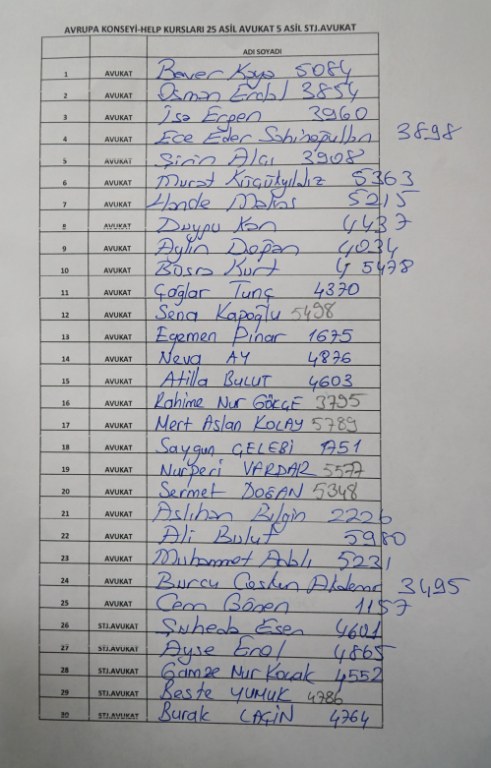 AVRUPA KONSEYİ-HELP KURSLARI 25 ASİL AVUKAT 5 ASİL STJ.AVUKAT
ADI SOYADI
1 AVUKAT Baver Kaya 5084
2 AVUKAT Osman Erdal 3854
3 AVUKAT İsa Ergen 3960
4 AVUKAT Ece Eder 3898
5 AVUKAT Şirin Algı 3908
6 AVUKAT Murat Küçükyıldız 5363
7 AVUKAT Hande 5215
8 AVUKAT Duygu Kan 4437
9 AVUKAT Aylin Doğan 4034
10 AVUKAT Büşra Kurt 5478
11 AVUKAT Çağlar Tunç 4370
12 AVUKAT Sena Kapoğlu 5498
13 AVUKAT Egemen Pınar 1675
14 AVUKAT Neva AY 4876
15 AVUKAT Atilla BULUT 4603
16 AVUKAT Rahime Nur GÖKÇE 3795
17 AVUKAT Mert Aslan KOLAY 5789
18 AVUKAT Saygun ÇELEBİ 1751
19 AVUKAT Nurperi VARDAR 5577
20 AVUKAT Sermet DOĞAN 5348
21 AVUKAT Aslıhan Bilgin 2226
22 AVUKAT Ali Bulut 5980
23 AVUKAT Muhammet 5231
24 AVUKAT Burcu Coşkun Akdemir 3495
25 AVUKAT Cem Gönen 1157
26 STJ.AVUKAT Şuheda Esen 4601
27 STJ.AVUKAT Ayşe Erol 4865
28 STJ.AVUKAT Gamze Nur Kocak 4552
29 STJ.AVUKAT Beste YUMUK 4786
30 STJ.AVUKAT Burak LAÇİN 4764